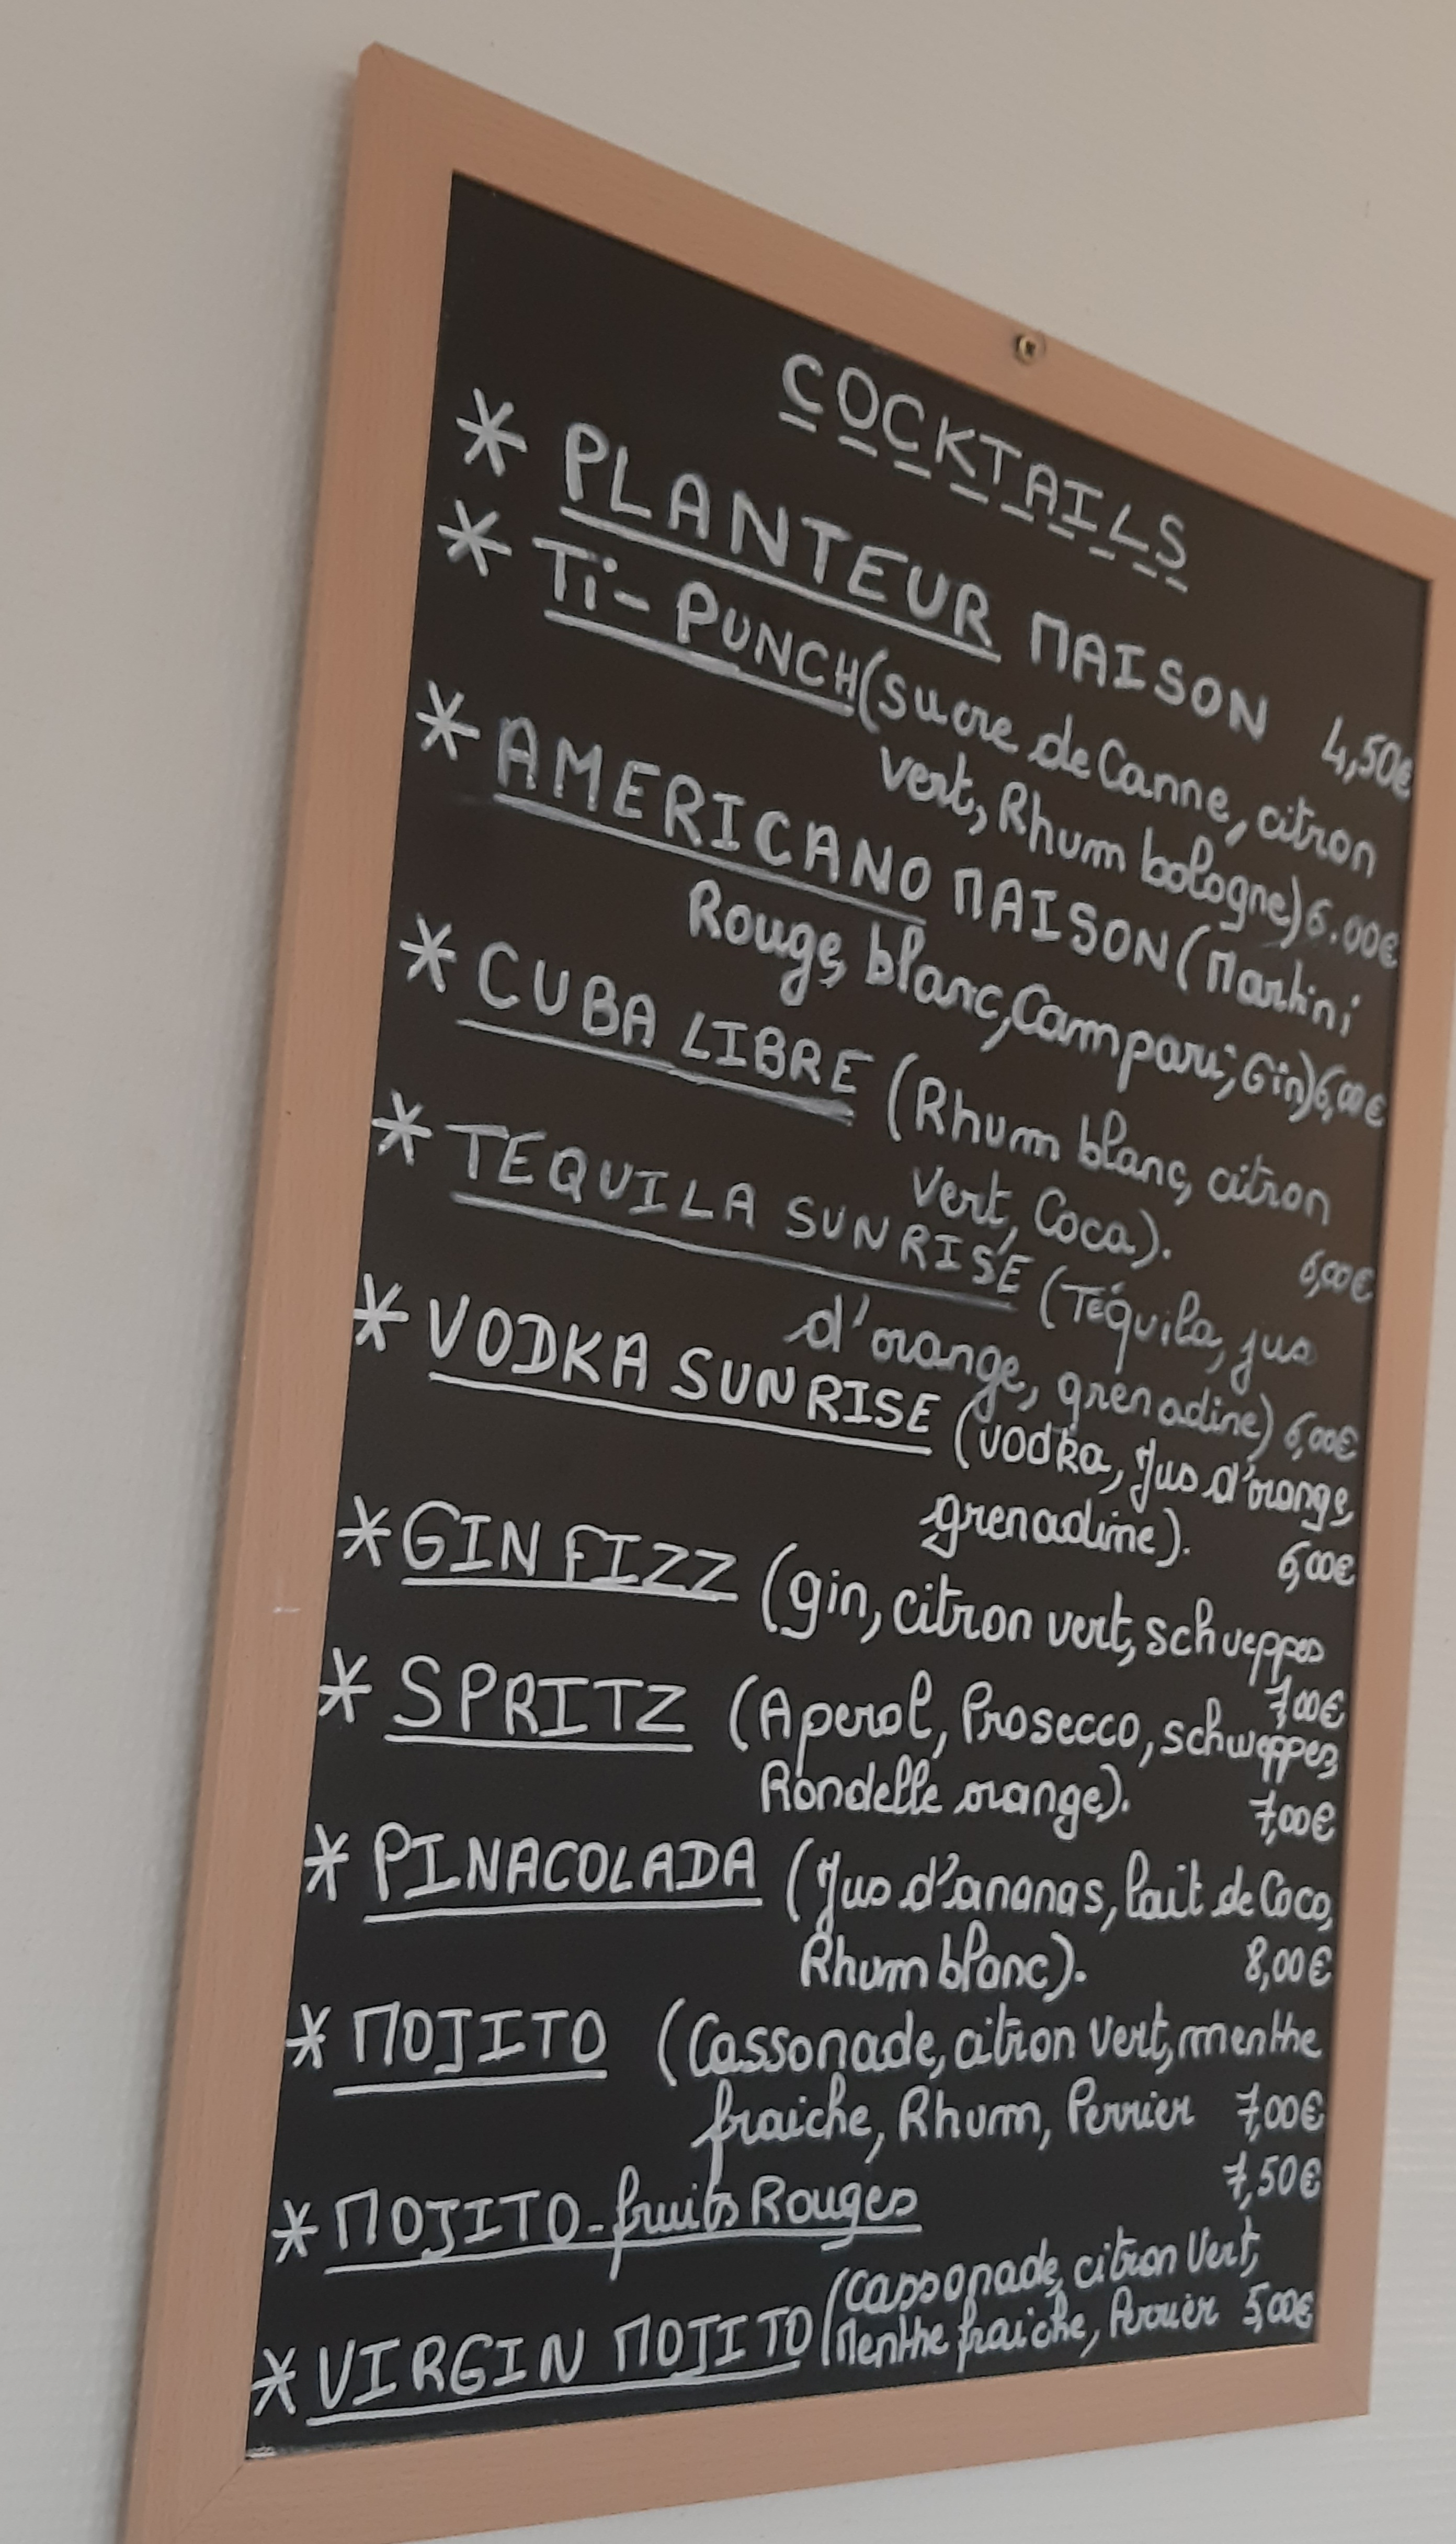 COCKTAILS
* PLANTEUR MAISON 4,50€
* Ti-PUNCH (sucre de Canne, citron
vert, Rhum bologne) 6.00€
* AMERICANO MAISON (Martini
Rouge, blanc, Campari, Gin) 6,00€
* CUBA LIBRE (Rhum blanc, citron
Vert, Coca). 6,00€
* TEQUILA SUNRISE (Téquila, jus
d'orange, grenadine) 6,00€
* VODKA SUNRISE (vodka, Jus d'orange,
grenadine). 6,00€
* GIN FIZZ (gin, citron vert, schueppes
7,00€
* SPRITZ (Aperol, Prosecco, schweppes,
Rondelle orange). 7,00€
* PINACOLADA (Jus d'ananas, lait de Coco,
Rhum blanc). 8,00€
* MOJITO (Cassonade, citron Vert, menthe
fraiche, Rhum, Perrier 7,00€
* MOJITO-fruits Rouges 7,50€
(cassonade, citron Vert,
* VIRGIN MOJITO Menthe fraiche, Perrier 5,00€